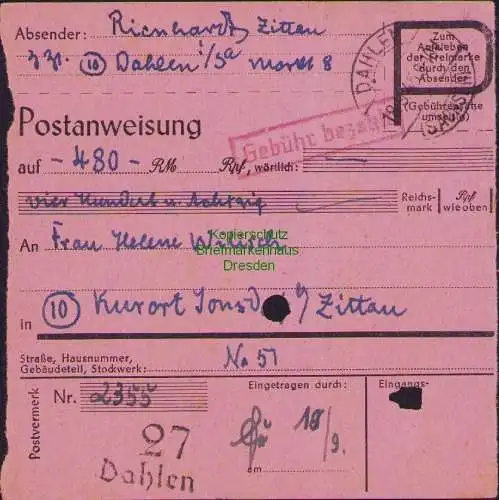 Absender: Rienhardt, Zittau
z. Zt. (10) Dahlen i/Sa Markt 8
DAHLEN
(SACHSEN)
Zum
Aufkleben
der Freimarke
durch den
Absender
(Gebührenhöhe
umseitig)
Postanweisung
Gebühr bezahlt
auf -480- RM Rpf, wörtlich:
vier Hundert u. Achtzig
Reichs-
mark
Rpf
wie oben
An Frau Helene
Kopierschutz
Briefmarkenhaus
Dresden
in (10) Kurort Jonsdorf b/ Zittau
Straße, Hausnummer,
Gebäudeteil, Stockwerk: No 51
Postvermerk
Nr. 2355
Eingetragen durch:
Eingangs-
27
Dahlen
am 18/9.